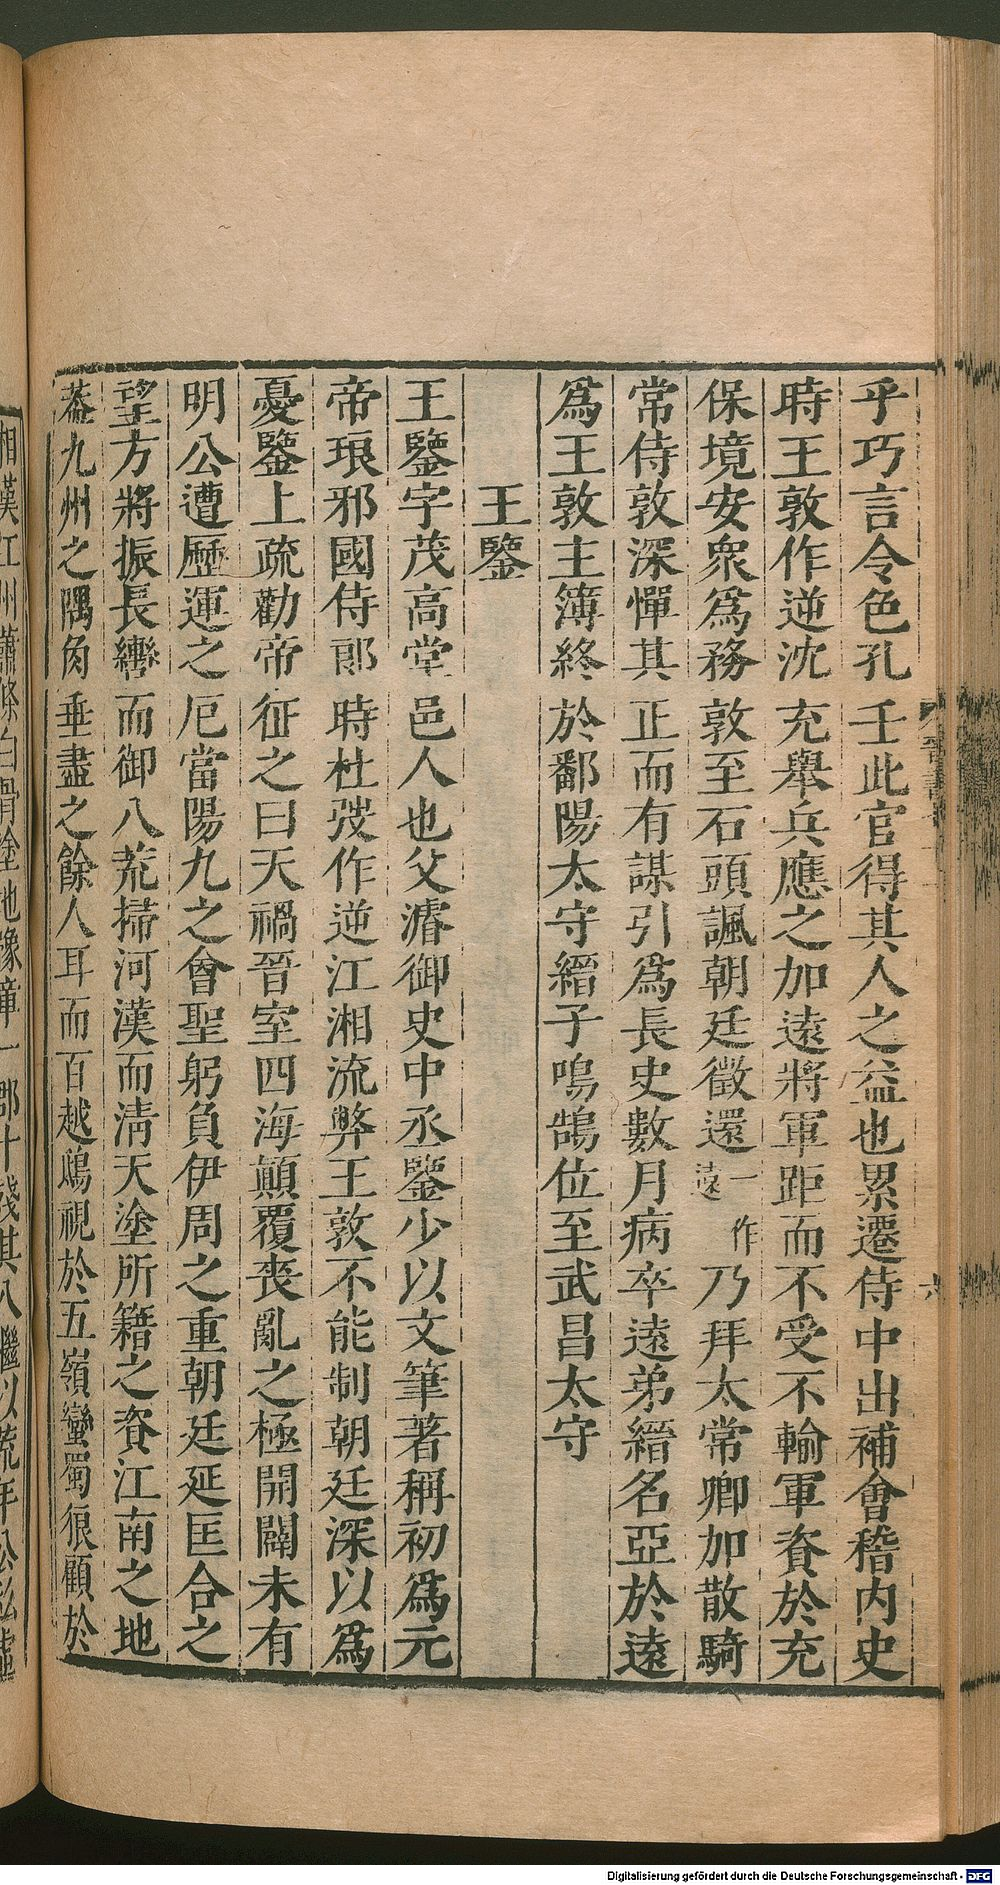 乎巧言令色孔壬此官得其人之益也累遷侍中出補會稽內史
時王敦作逆沈充舉兵應之加遠將軍距而不受不輸軍資於充
保境安衆爲務敦至石頭諷朝廷徵還一作遠乃拜太常卿加散騎
常侍敦深憚其正而有謀引爲長史數月病卒遠弟縉名亞於遠
爲王敦主簿終於鄱陽太守縉子鳴鵠位至武昌太守
王鑒
王鑒字茂高堂邑人也父濬御史中丞鑒少以文筆著稱初爲元
帝琅邪國侍郞時杜弢作逆江湘流弊王敦不能制朝廷深以爲
憂鑒上疏勸帝征之曰天禍晉室四海顚覆喪亂之極開闢未有
明公遭歷運之厄當陽九之會聖躬負伊周之重朝廷延匡合之
望方將振長轡而御八荒掃河漢而淸天塗所籍之資江南之地
葢九州之隅角垂盡之餘人耳而百越鴟視於五嶺蠻蜀狼顧於
湘漢江州蕭條白骨塗地豫章一郡十殘其八繼以荒年公私虛
Digitalisierung gefördert durch die Deutsche Forschungsgemeinschaft - DFG